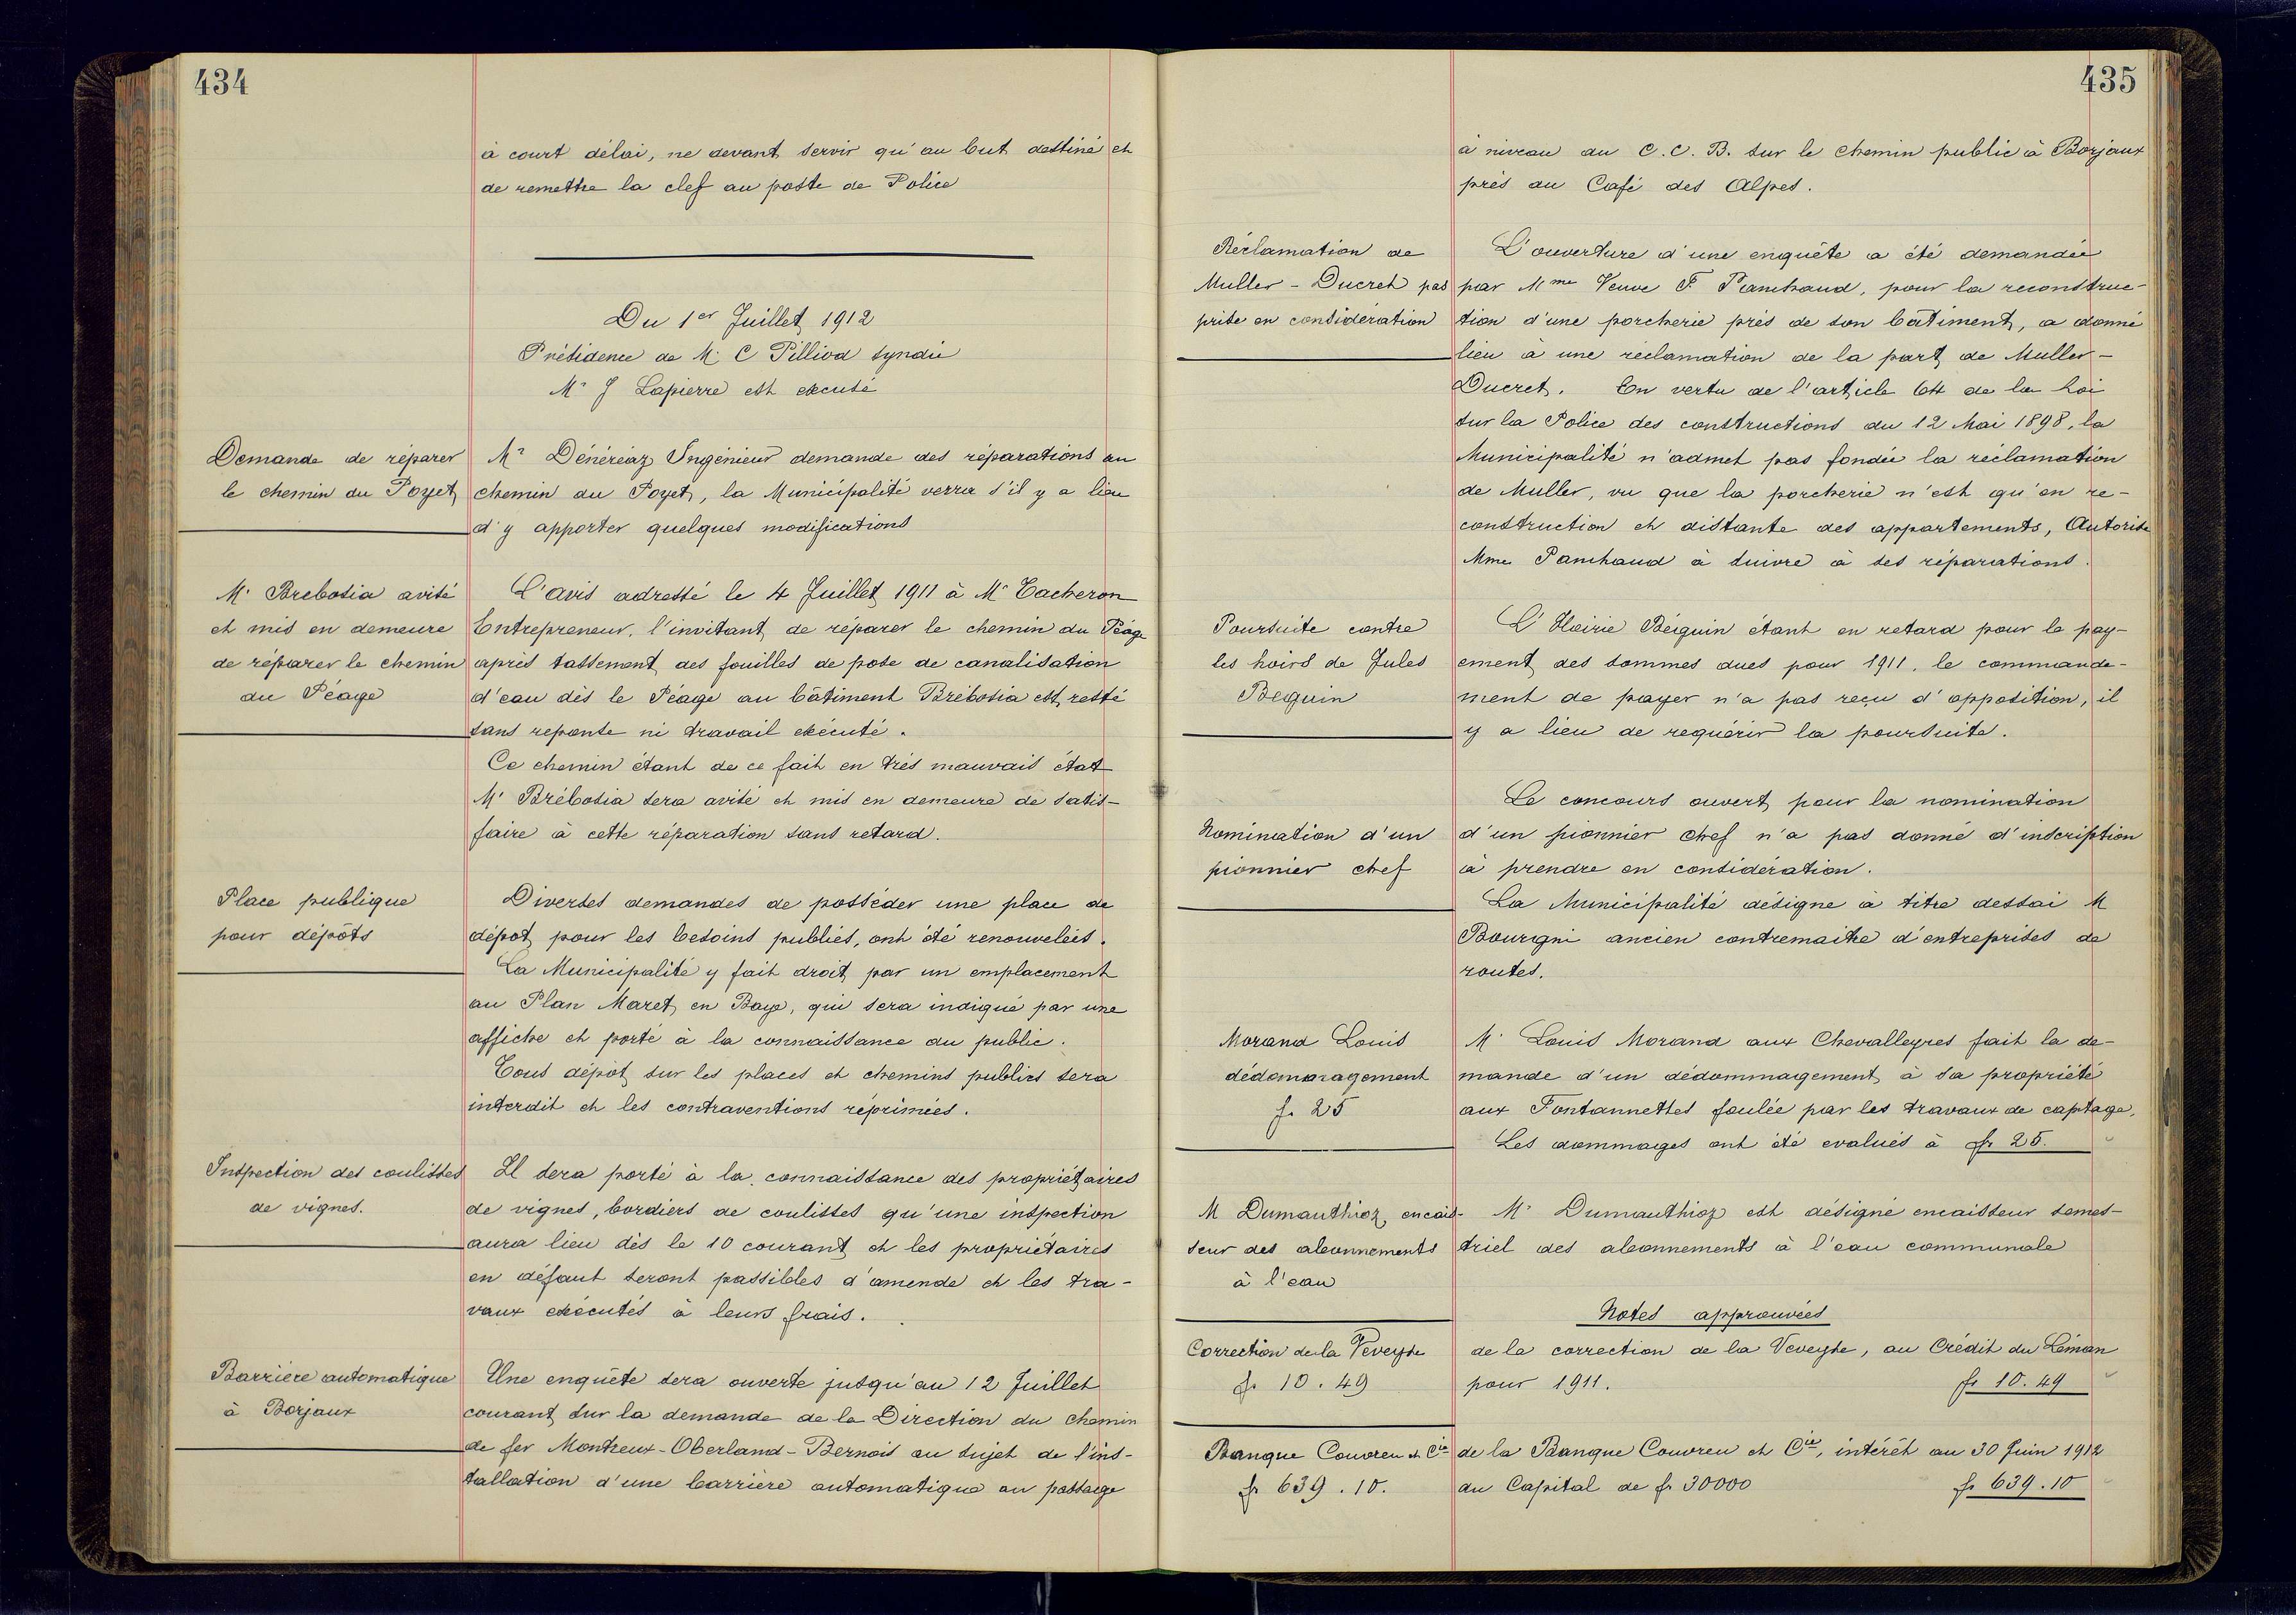 434
à court délai, ne devant servir qu'au but destiné et
de remettre la clef au poste de Police
Du 1er Juillet 1912
Présidence de Mr C Pilliod syndic
Mr J Lapierre est excusé
Demande de réparer
le chemin du Poyet
Mr Dénéréaz Ingénieur demande des réparations au
chemin du Poyet, la Municipalité verra s'il y a lieu
d'y apporter quelques modifications
Mr Brebosia avisé
et mis en demeure
de réparer le chemin
du Péage
L'avis adressé le 4 Juillet 1911 à Mr Tacheron
Entrepreneur, l'invitant de réparer le chemin du Péage
après tassement des fouilles de pose de canalisation
d'eau dès le Péage au bâtiment Brébosia est resté
sans reponse ni travail exécuté.
Ce chemin étant de ce fait en très mauvais état
Mr Brébosia sera avisé et mis en demeure de satis-
faire à cette réparation sans retard.
Place publique
pour dépôts
Diverses demandes de posséder une place de
dépot pour les besoins publics, ont été renouvelées.
La Municipalité y fait droit par un emplacement
au Plan Maret en Baye, qui sera indiqué par une
affiche et porté à la connaissance du public.
Tous dépôt sur les places et chemins publics sera
interdit et les contraventions réprimées.
Inspection des coulisses
de vignes.
Il sera porté à la connaissance des propriétaires
de vignes, bordiers de coulisses qu'une inspection
aura lieu dès le 10 courant et les propriétaires
en défaut seront passibles d'amende et les tra-
vaux exécutés à leurs frais.
Barrière automatique
à Borjaux
Une enquête sera ouverte jusqu'au 12 Juillet
courant sur la demande de la Direction du chemin
de fer Montreux-Oberland-Bernois au sujet de l'ins-
tallation d'une barrière automatique au passage
435
à niveau du C.C.B. sur le chemin public à Borjaux
près du Café des Alpes.
Réclamation de
Muller - Ducret pas
prise en considération
L'ouverture d'une enquête a été demandée
par Mme Veuve F. Panchaud, pour la reconstruc-
tion d'une porcherie près de son bâtiment, a donné
lieu à une réclamation de la part de Muller-
Ducret. En vertu de l'article 64 de la Loi
sur la Police des constructions du 12 Mai 1898, la
Municipalité n'admet pas fondée la réclamation
de Muller, vu que la porcherie n'est qu'en re-
construction et distante des appartements, Autorise
Mme Panchaud à suivre à ses réparations.
Poursuite contre
les hoirs de Jules
Beguin
L'Hoirie Béguin étant en retard pour le pay-
ement des sommes dues pour 1911, le commande-
ment de payer n'a pas reçu d'opposition, il
y a lieu de requérir la poursuite.
Nomination d'un
pionnier chef
Le concours ouvert pour la nomination
d'un pionnier chef n'a pas donné d'inscription
à prendre en considération.
La Municipalité désigne à titre dessai M
Bourgni ancien contremaitre d'entreprises de
routes.
Morand Louis
dédommagement
fr 25
Mr Louis Morand aux Chevalleyres fait la de-
mande d'un dédommagement à sa propriété
aux Fontannettes foulée par les travaux de captage,
Les dommages ont été evalués à fr 25.
M Dumauthioz, encais-
seur des abonnements
à l'eau
Mr Dumauthioz est désigné encaisseur semes-
triel des abonnements à l'eau communale
Notes approuvées
Correction de la Veveyse
fr 10.49
de la correction de la Veveyse, au Crédit du Léman
pour 1911. fr 10.49
Banque Couvreu & Cie
fr 639.10.
de la Banque Couvreu et Cie, intérêt au 30 Juin 1912
du Capital de fr 30000 fr 639.10